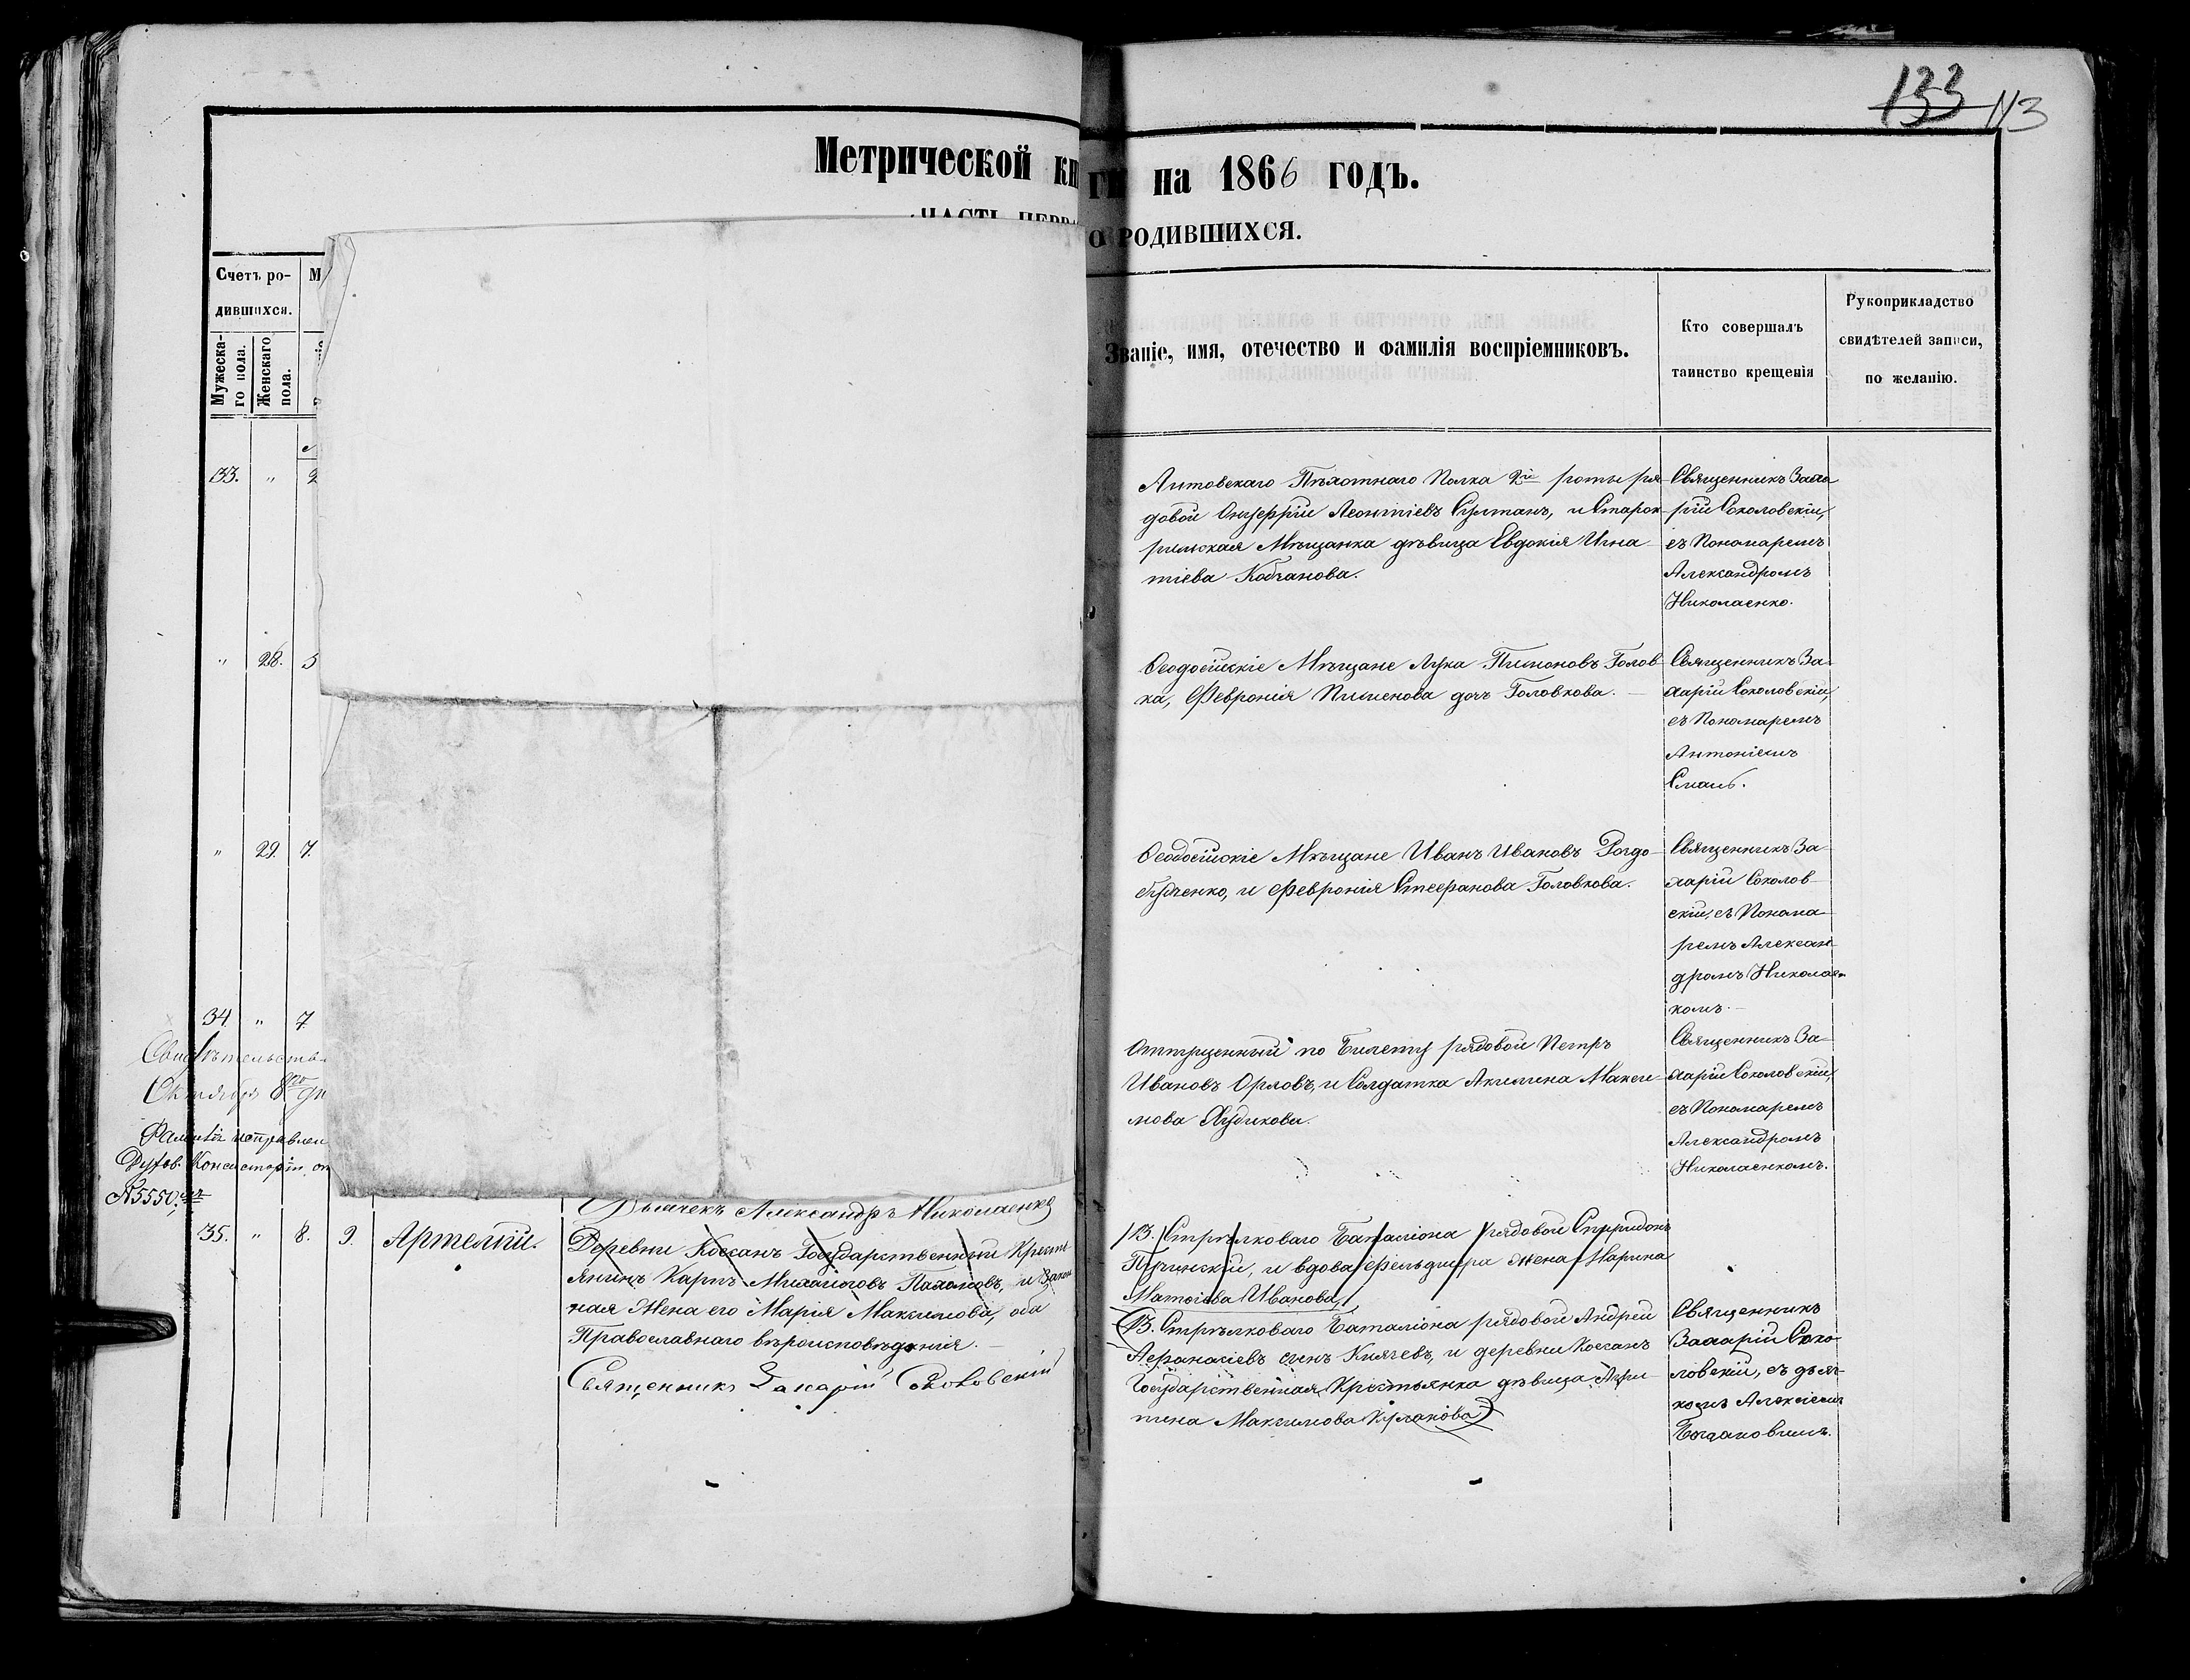 133 113
Метрической кн
ги на 1866 годъ.
О РОДИВШИХСЯ.
Счетъ ро-
дившихся.
Мужеска-
го пола.
Женскаго
пола.
Званіе, имя, отечество и фамилія воспріемниковъ.
Кто совершалъ
таинство крещенія
Рукоприкладство
свидѣтелей записи,
по желанію.
33. „ 2
Литовскаго Пѣхотнаго Полка 2й роты ря
довой Онуфрій Леонтіевъ Султанъ, и Старок
рымская Мѣщанка дѣвица Евдокія Игна
тіева Кобчанова.
Священникъ Заха
рій Соколовскій,
съ Пономаремъ
Александромъ
Николаенко.
„ 28. 5
Ѳеодосійскіе Мѣщане Лука Пимоновъ Голов
ка, Февронія Пименова доч Головкова.
Священникъ За
харій Соколовскій,
съ Пономаремъ
Антоніемъ
„ 29. 7.
Ѳеодосійскіе Мѣщане Иванъ Ивановъ
и Февронія Стефанова Головкова.
Священникъ За
харій Соколов
скій, съ Понома
ремъ Алексан
дромъ Николаен
комъ.
34. „ 7.
Свидѣтельств
Октября 8го дн
Фамилія исправлен
Духов. Консисторіи от
№5550.
Отпущенный по Билету рядовой Петръ
Ивановъ Орловъ, и Солдатка Акилина Макси
мова Худикова.
Священникъ За
харій Соколовскій,
съ Пономаремъ
Александромъ
Николаенкомъ.
Дьячекъ Александръ Николаенко
35. „ 8. 9. Артемій.
Деревни Коссанъ Государственный Кресть
янинъ Карпъ Михайловъ Пахомовъ, и Закон
ная Жена его Марія Максимова, оба
Православнаго вѣроисповѣданія.
Священникъ Захарій Соколовскій
13. Стрѣлковаго Баталіона рядовой Спиридонъ
и вдова Фельдшера Жена Марина
Матвіева Иванова,
13. Стрѣлковаго Баталіона рядовой Андрей
Афанасіевъ сынъ Княжевъ, и деревни Коссанъ
Государственная Крестьянка дѣвица Агри
пина Максимова
Священникъ
Захарій Соко
ловскій, съ дьяч
комъ Алексіемъ